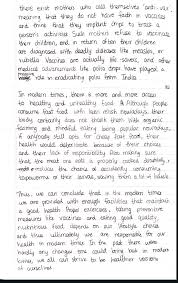 there exist mothers who call themselves "anti-vax"
meaning that they do not have faith in vaccines
and think that they implant chips to track a
person's activities. Such mothers refuse to vaccinate
their children, and in return often their children
are diagnosed with deadly diseases like measles, or
rubella. Vaccines are actually life savers, and other
medical advancements like polio drops have played a
role in eradicating polio from India.
In modern times, there is more and more access
to healthy and unhealthy food. Although people
consume fast food with less much
body certainly does not thank them with organic
farming and mindful eating being popular nowadays,
if anybody still opts for cheap fast food, their
health would deteriorate because of their choices
and their lack of responsibility. Also making sure
that the meat one eats is properly cooked
reduces the chance of accidentally consuming
tapeworms or their larvae, saving them a lot of
Thus, we can conclude that in the modern times
we are provided with enough facilities that maintain
a good health. Proper exercises, taking preventive
measures like vaccines and eating good quality,
nutritious food depends on our lifestyle choice
and thus ultimately we are responsible for our
health in modern times. In the past there were
hardly any changes one could bring but in modern
times, we all can strive to be healthier versions
of ourselves.